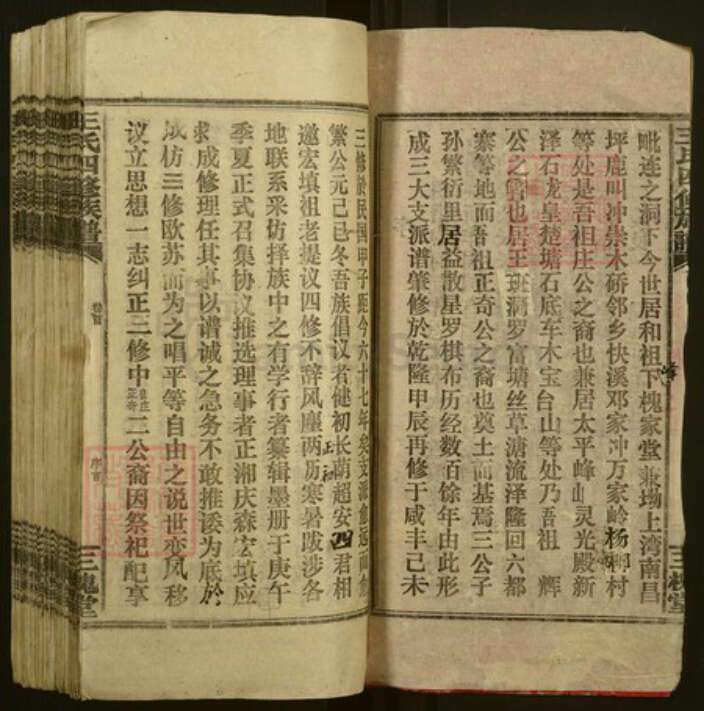 毗连之洞下今世居和祖下槐家堂兼坳上湾南昌
坪鹿叫冲崇木硚邻乡快溪邓家冲万家岭杨柳村
等处是吾祖庄公之裔也兼居太平峰山灵光殿新
泽石龙皇楚塘石底车木宝台山等处乃吾祖 辉
公之裔也居王斑洞罗富塘丝草溏流泽隆回六都
寨等地而吾祖正奇公之裔也奠土而基焉三公子
孙繁衍里居益散星罗棋布历经数百馀年由此形
成三大支派谱肇修於乾隆甲辰再修于咸丰己未
三修於民国甲子距今六十七年矣支派愈远而愈
繁公元己巳冬吾族倡议者健初长荫超安四君相
邀宏填祖老提议四修不辞风塵两历寒暑跋涉各
地联系采访择族中之有学行者纂辑墨册于庚午
季夏正式召集协议推选理事者正湘庆森宏填应
求成修理任其事以谱诚之急务不敢推诿为底於
成仿三修欧苏而为之唱平等自由之说世变风移
议立思想一志纠正二修中二公裔因祭祀配享
王氏四修族谱
卷首
序首
三槐堂
王氏四修族谱
三槐堂